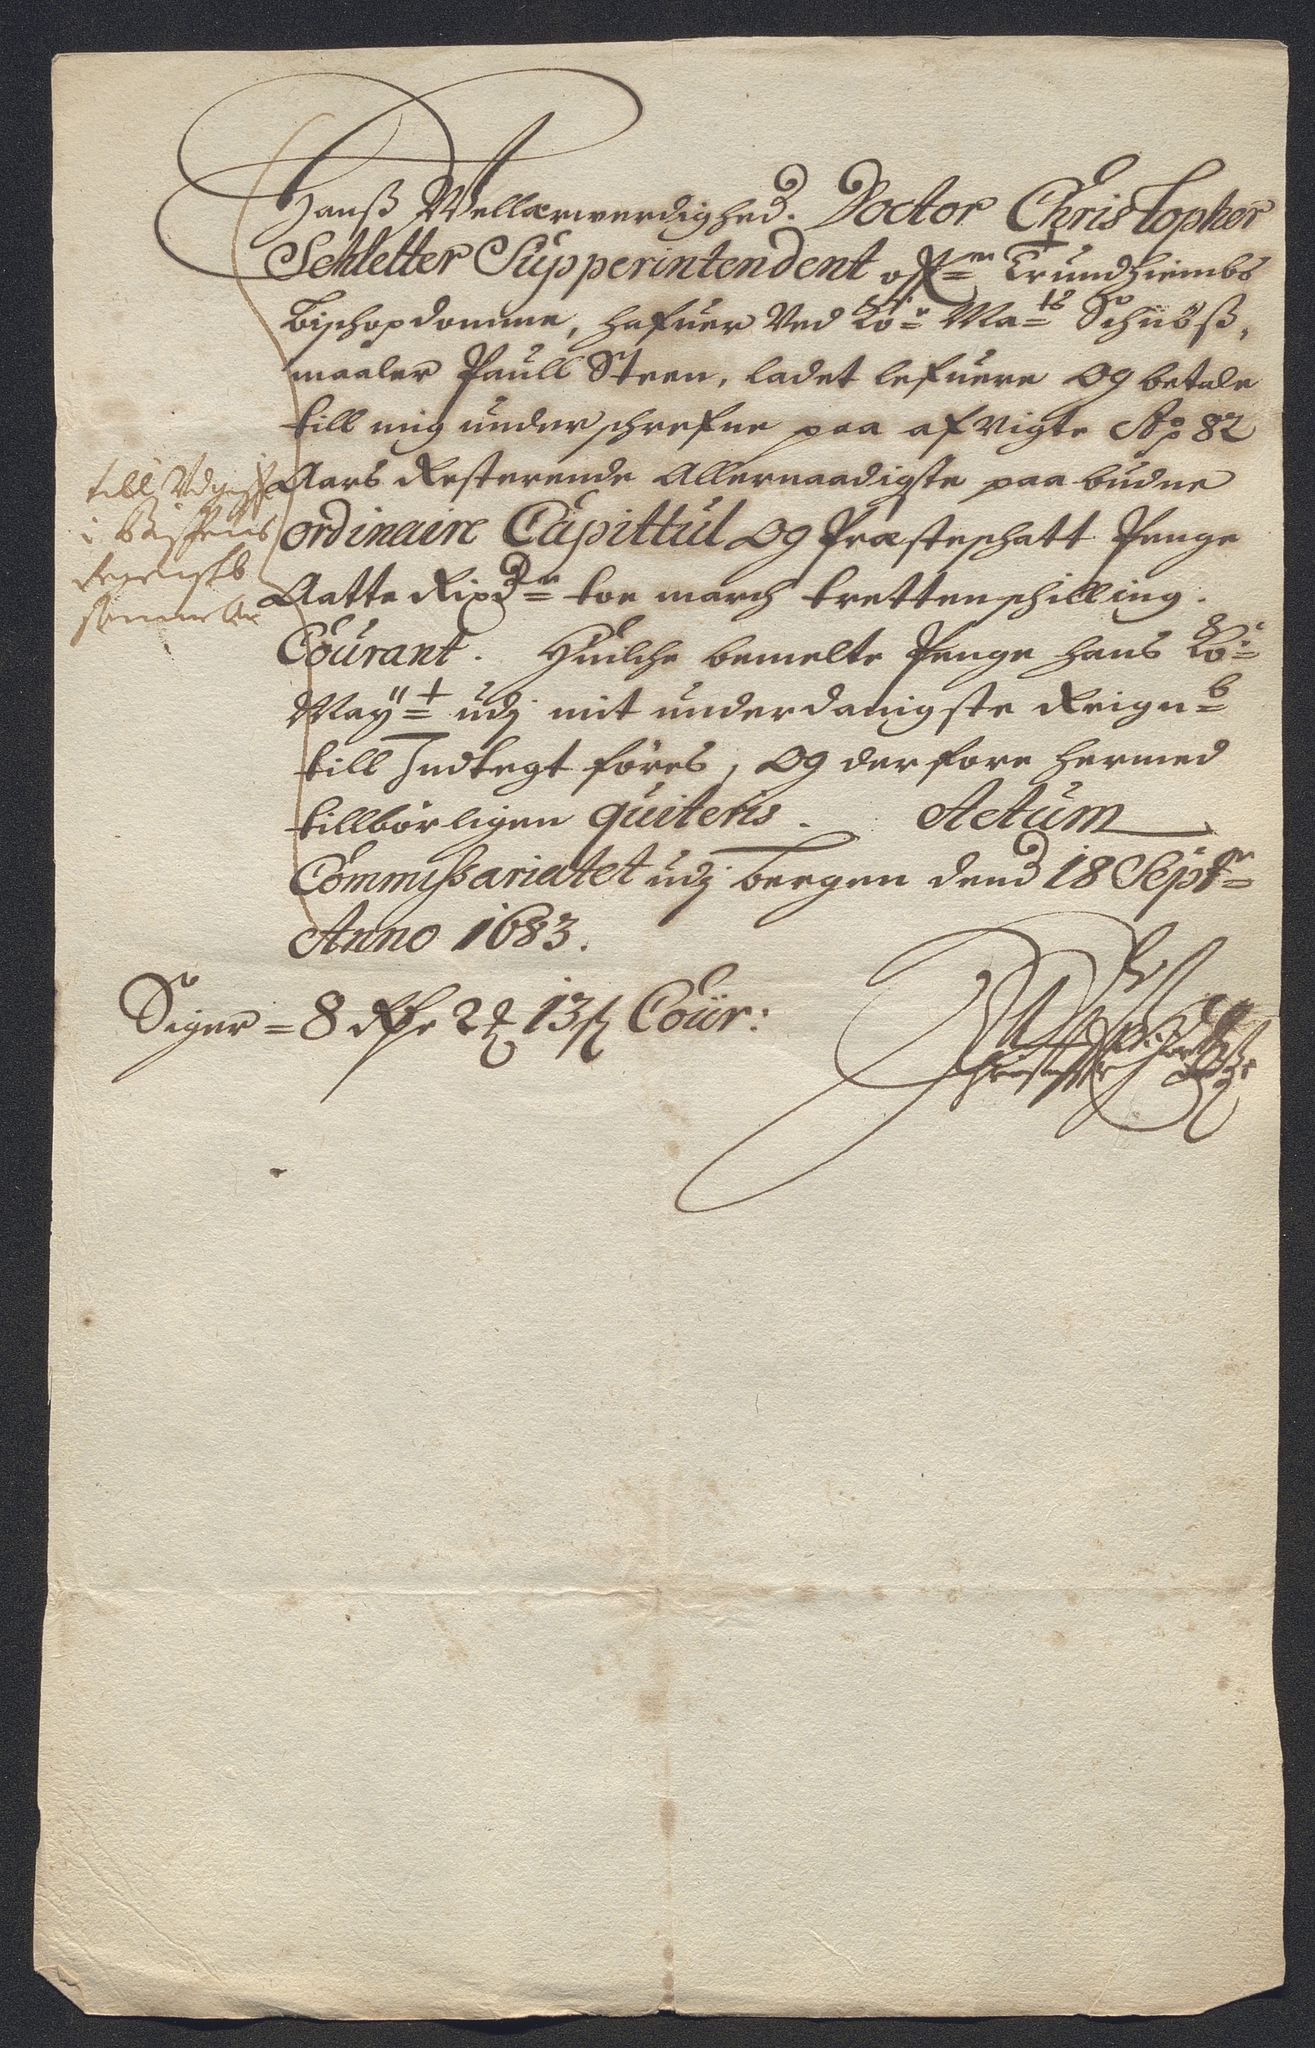 Hanß Wellærwerdighed. Doctor Christopher
Schletter Supperintendent ofuer Trundhiembs
Bischopdomme, hafuer Ved Ko: Ma:ts Schiøß,
maaler Paull Steen, ladet lefuere og betale
till mig underschrefne paa afvigte Ao: 82
Aars Resterende Allernaadigste paabudne
ordinaire Capittul og Præsteschatt Penge
Aatte Rixdr toe march tretten schilling.
Courant. Huilche bemelte Penge hans Ko:
May:t udj mit underdanigste Reign:b
till Indtegt føres, og derfore hermed
tillbørligen quiteris. Actum
Commissariatet udj Bergen dend 18 Septr
Anno 1683.
Siger = 8 Rdr 2 ₰ 13 ß Cour:
till Udgift
i Bispens
Regensk